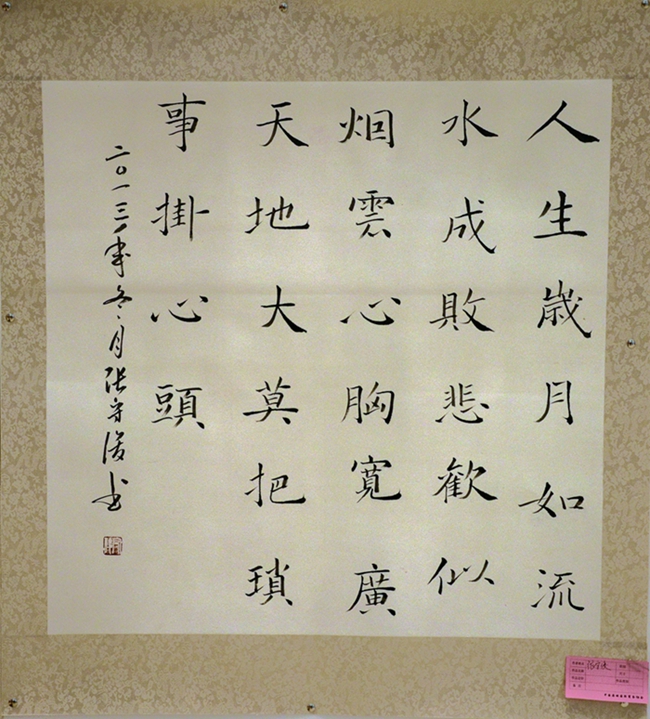 人生歲月如流
水成敗悲歡似
烟雲心胸寬廣
天地大莫把瑣
事掛心頭
二〇一三年冬月張守俊书